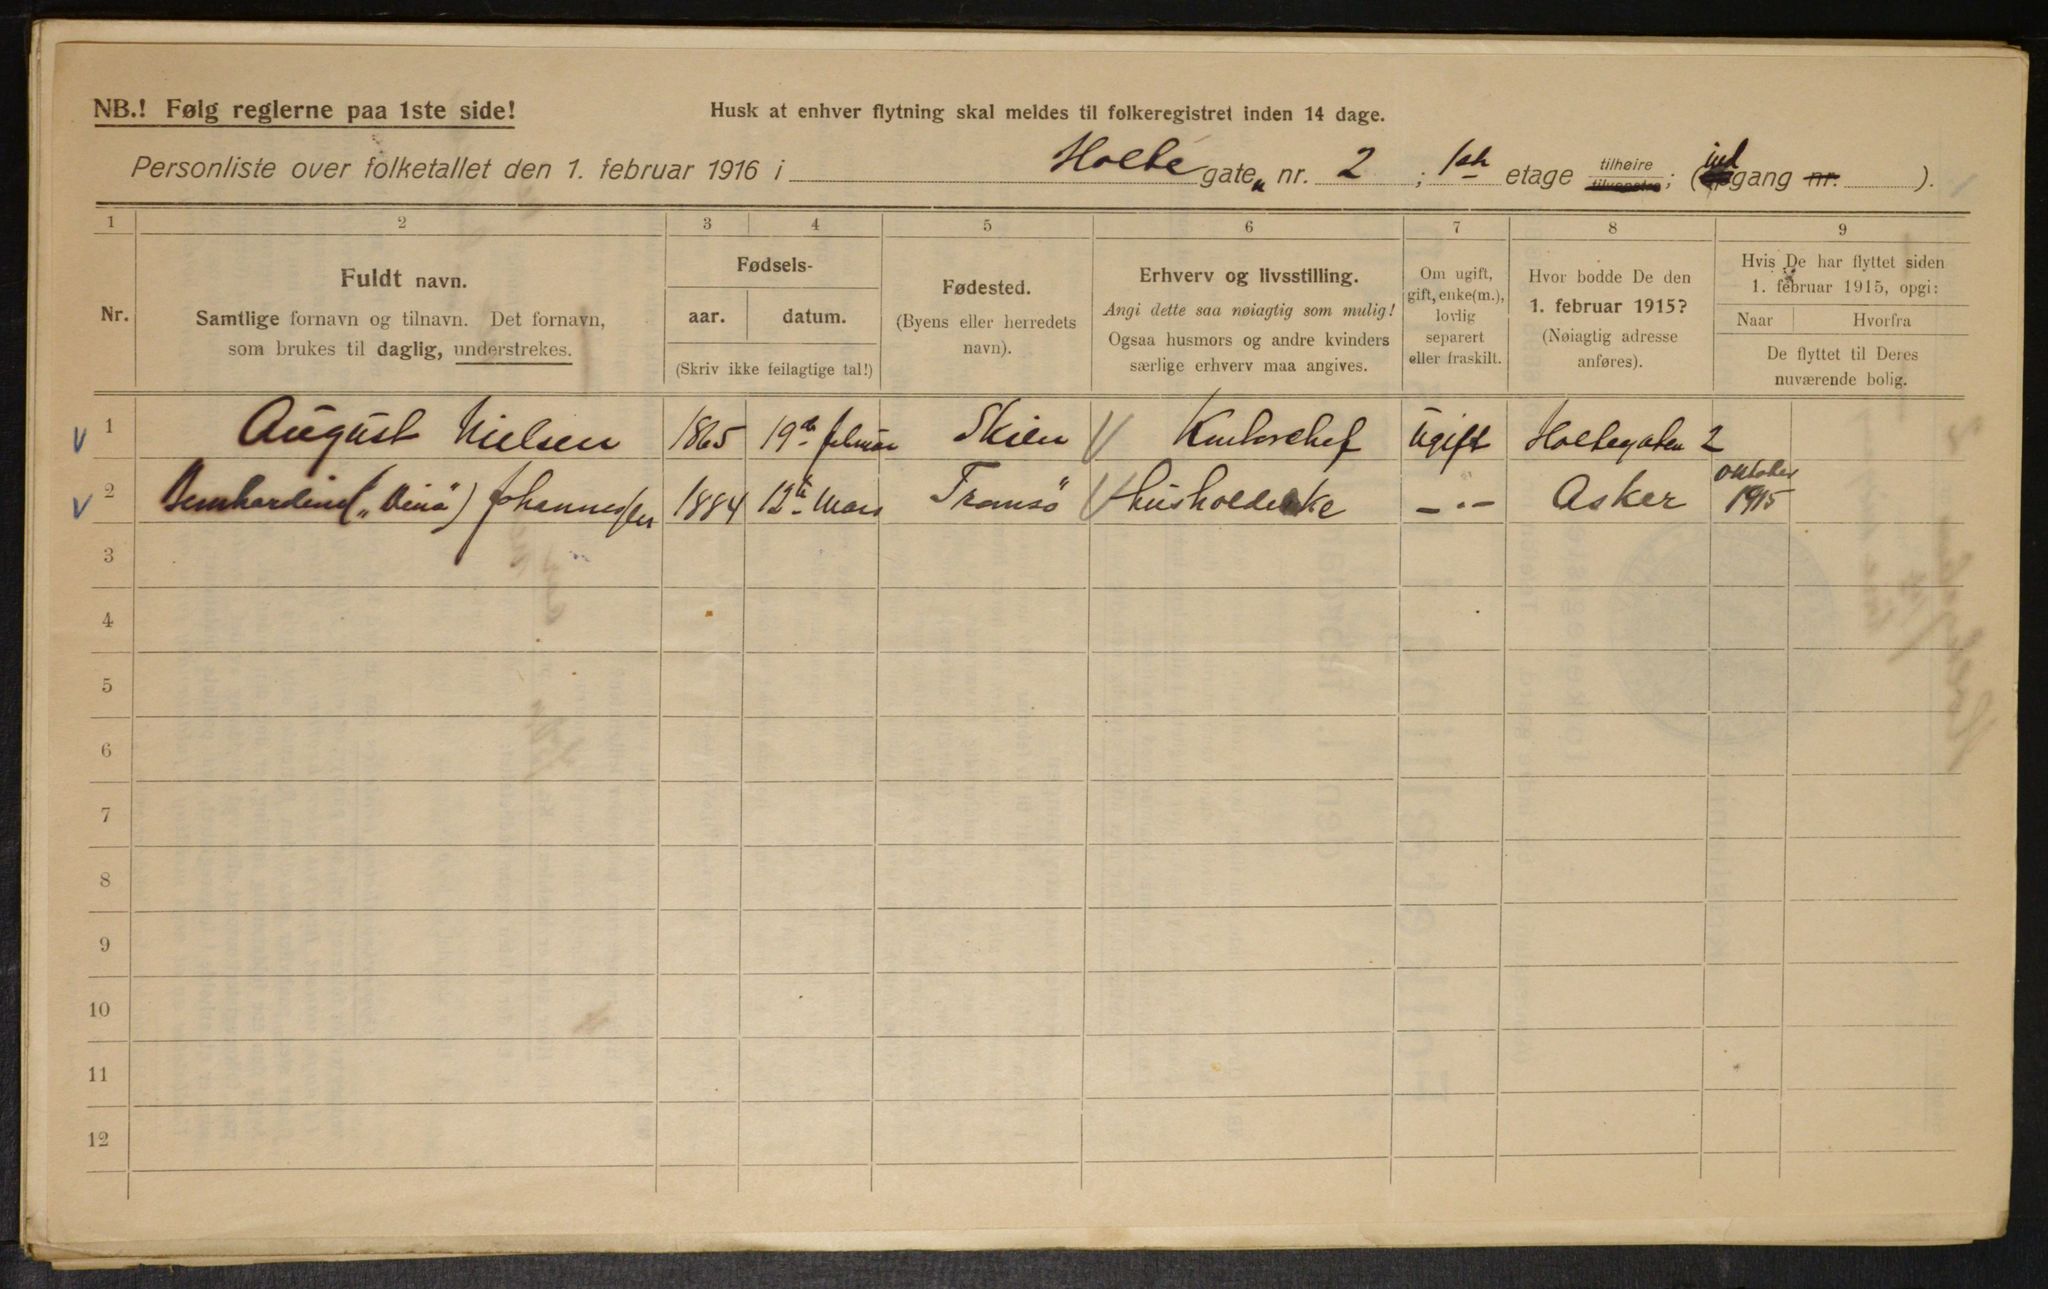 NB.! Følg reglerne paa 1ste side!
Husk at enhver flytning skal meldes til folkeregistret inden 14 dage.
Personliste over folketallet den 1. februar 1916 i Holte gaten nr. 2 ; 1ste etage tilhøire tilvenstre; (indgang nr. ).
1 2 3 4 5 6 7 8 9
Nr.
Fuldt navn.
Samtlige fornavn og tilnavn. Det fornavn,
som brukes til daglig, understrekes.
Fødsels-
aar. datum.
(Skriv ikke feilagtige tal!)
Fødested.
(Byens eller herredets
navn).
Erhverv og livsstilling.
Angi dette saa nøiagtig som mulig!
Ogsaa husmors og andre kvinders
særlige erhverv maa angives.
Om ugift,
gift, enke(m.),
lovlig
separert
eller fraskilt.
Hvor bodde De den
1. februar 1915?
(Nøiagtig adresse
anføres).
Hvis De har flyttet siden
1. februar 1915, opgi:
Naar Hvorfra
De flyttet til Deres
nuværende bolig.
1 August Nielsen 1865 19de februar Skien Kontorchef Ugift Holtegaten 2
2 Bernhardine („Dina") Johannessen 1884 12te Mars Tromsø Husholderske -"- Asker oktober 1915
3
4
5
6
7
8
9
10
11
12